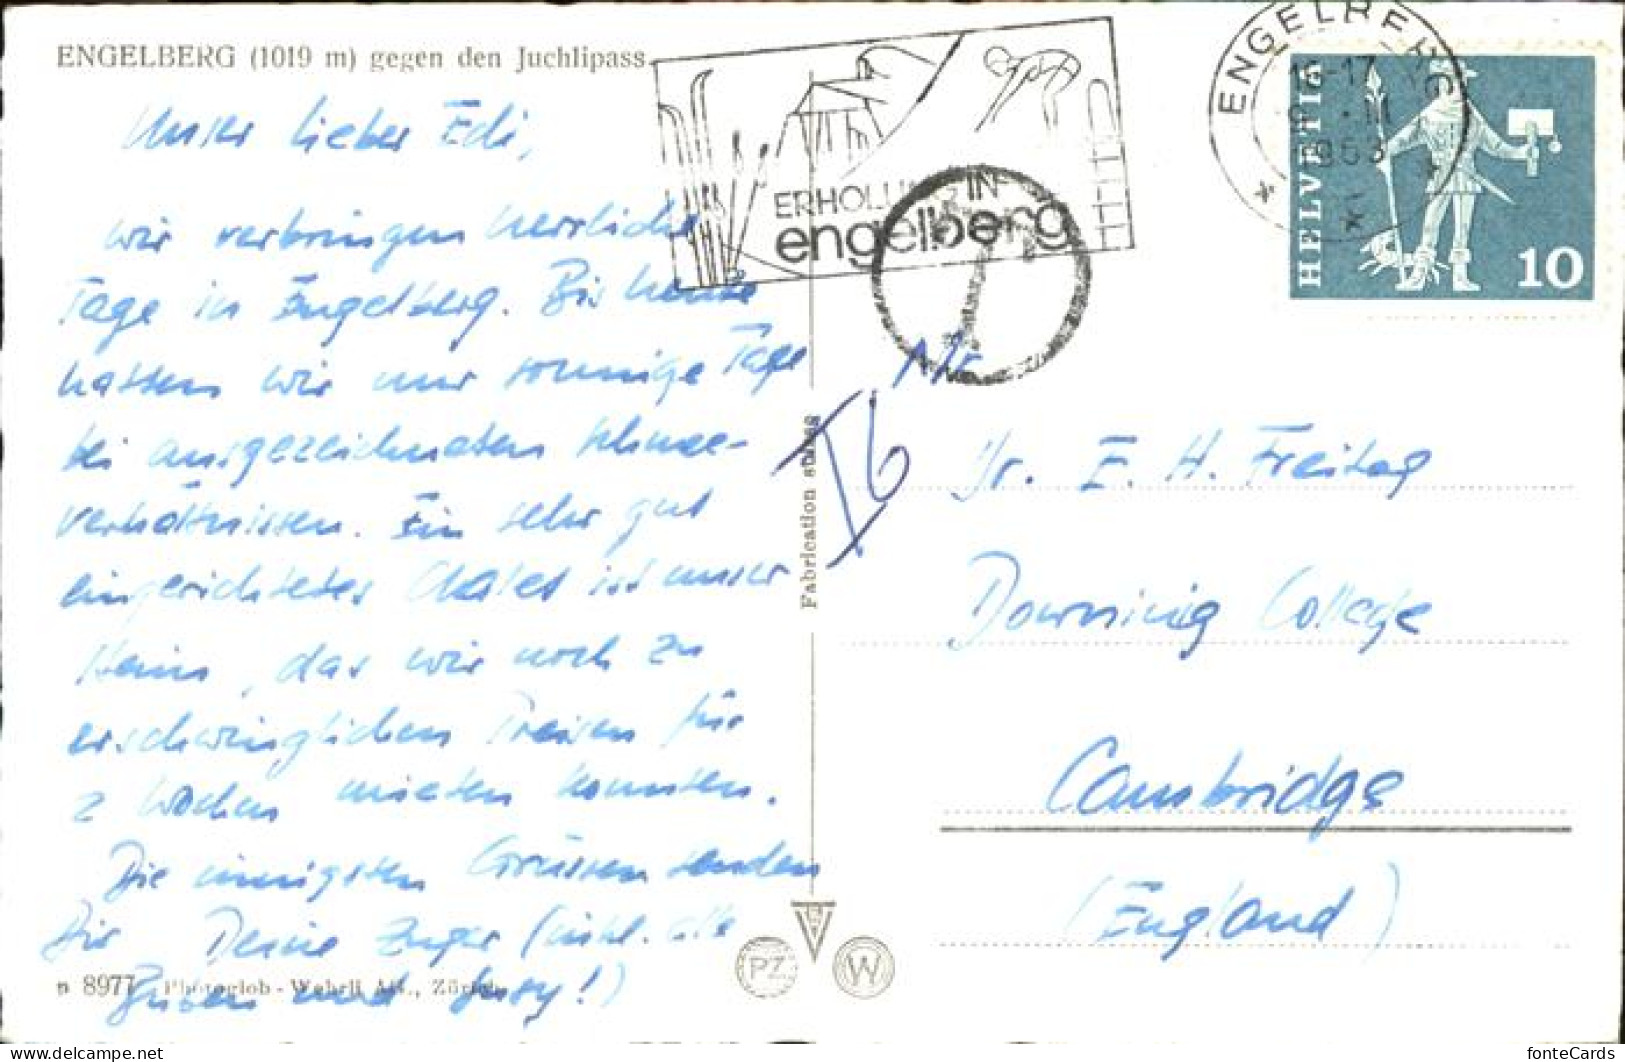 ENGELBERG (1019 m) gegen den Juchlipass
ERHOLUNG IN
engelberg
ENGELBERG
16-17
1963
HELVETIA
10
Unser lieber Edi,
wir verbringen herrliche
Tage in Engelberg. Bis heute
hatten wir nur sonnige Tage
bei ausgezeichneten Schnee-
verhältnissen. Ein sehr gut
eingerichtetes Chalet ist unser
Heim, das wir noch zu
erschwinglichen Preisen für
2 Wochen mieten konnten.
Die innigsten Grüssen senden
Dir Deine Zuger (inkl. alle
Buben und Susy!)
T
Mr. E. H. Freitag
Downing College
Cambridge
(England)
Fabrication suisse
n 8977 Photoglob-Wehrli AG., Zürich
PZ
W
fonteCards